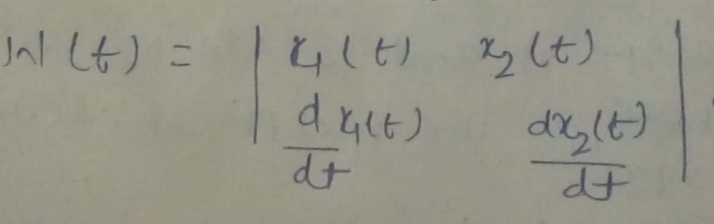 W(t) = | x₁(t) x₂(t) |
| d/dt x₁(t) dx₂(t)/dt |